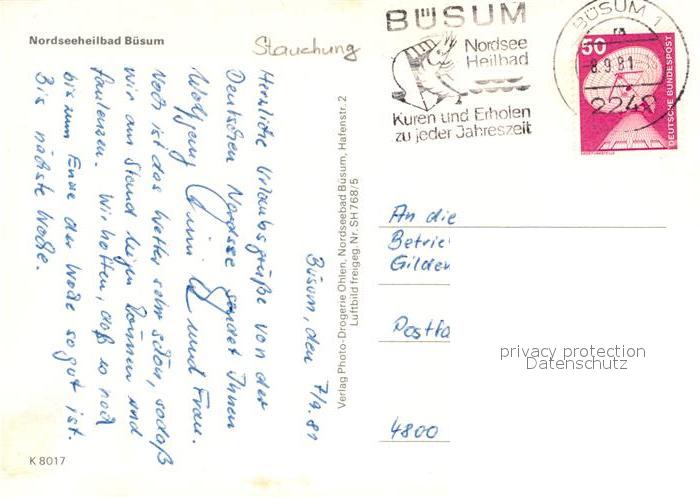 Nordseeheilbad Büsum
Stauchung
BÜSUM
Nordsee
Heilbad
Kuren und Erholen
zu jeder Jahreszeit
BÜSUM 1
8.9.81
2242
50
DEUTSCHE BUNDESPOST
Büsum, den 7/9.81
Herzliche Urlaubsgrüße von der
Deutschen Nordsee sendet Ihnen
Wolfgang und Frau.
Noch ist das Wetter sehr schön, sodaß
wir am Strand liegen können und
faulenzen. Wir hoffen, daß es noch
bis zum Ende der Woche so gut ist.
Bis nächste Woche.
Verlag Photo-Drogerie Ohlen, Nordseebad Büsum, Hafenstr. 2
Luftbild freigeg. Nr. SH 768/5
An die
Betrie
Gilden
Postfa
4800
privacy protection
Datenschutz
K 8017